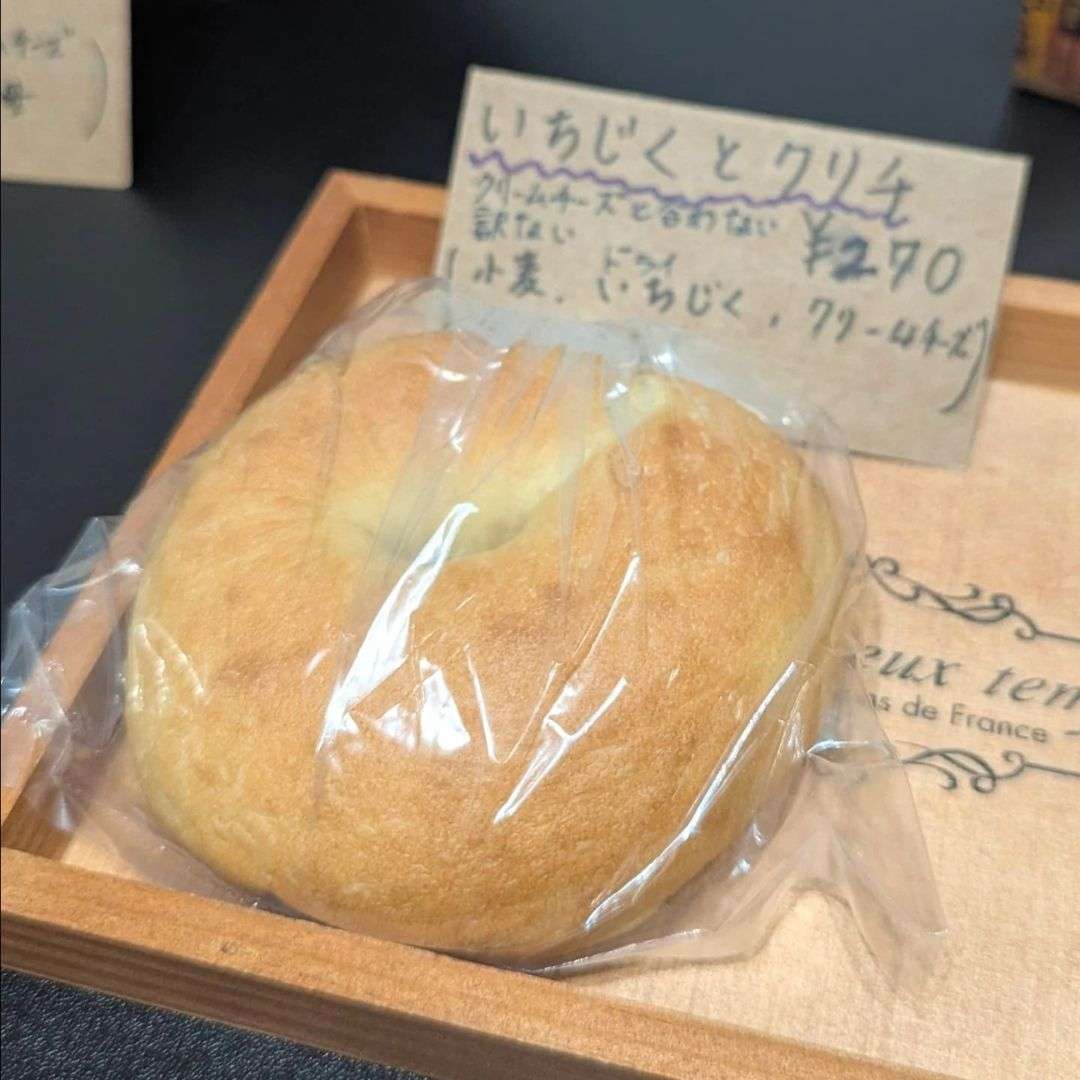 ムチーズ
いちじくとクリチ
クリームチーズと合わない
訳ない
¥270
ドライ
(小麦、いちじく、クリームチーズ)
eux tem
ns de France